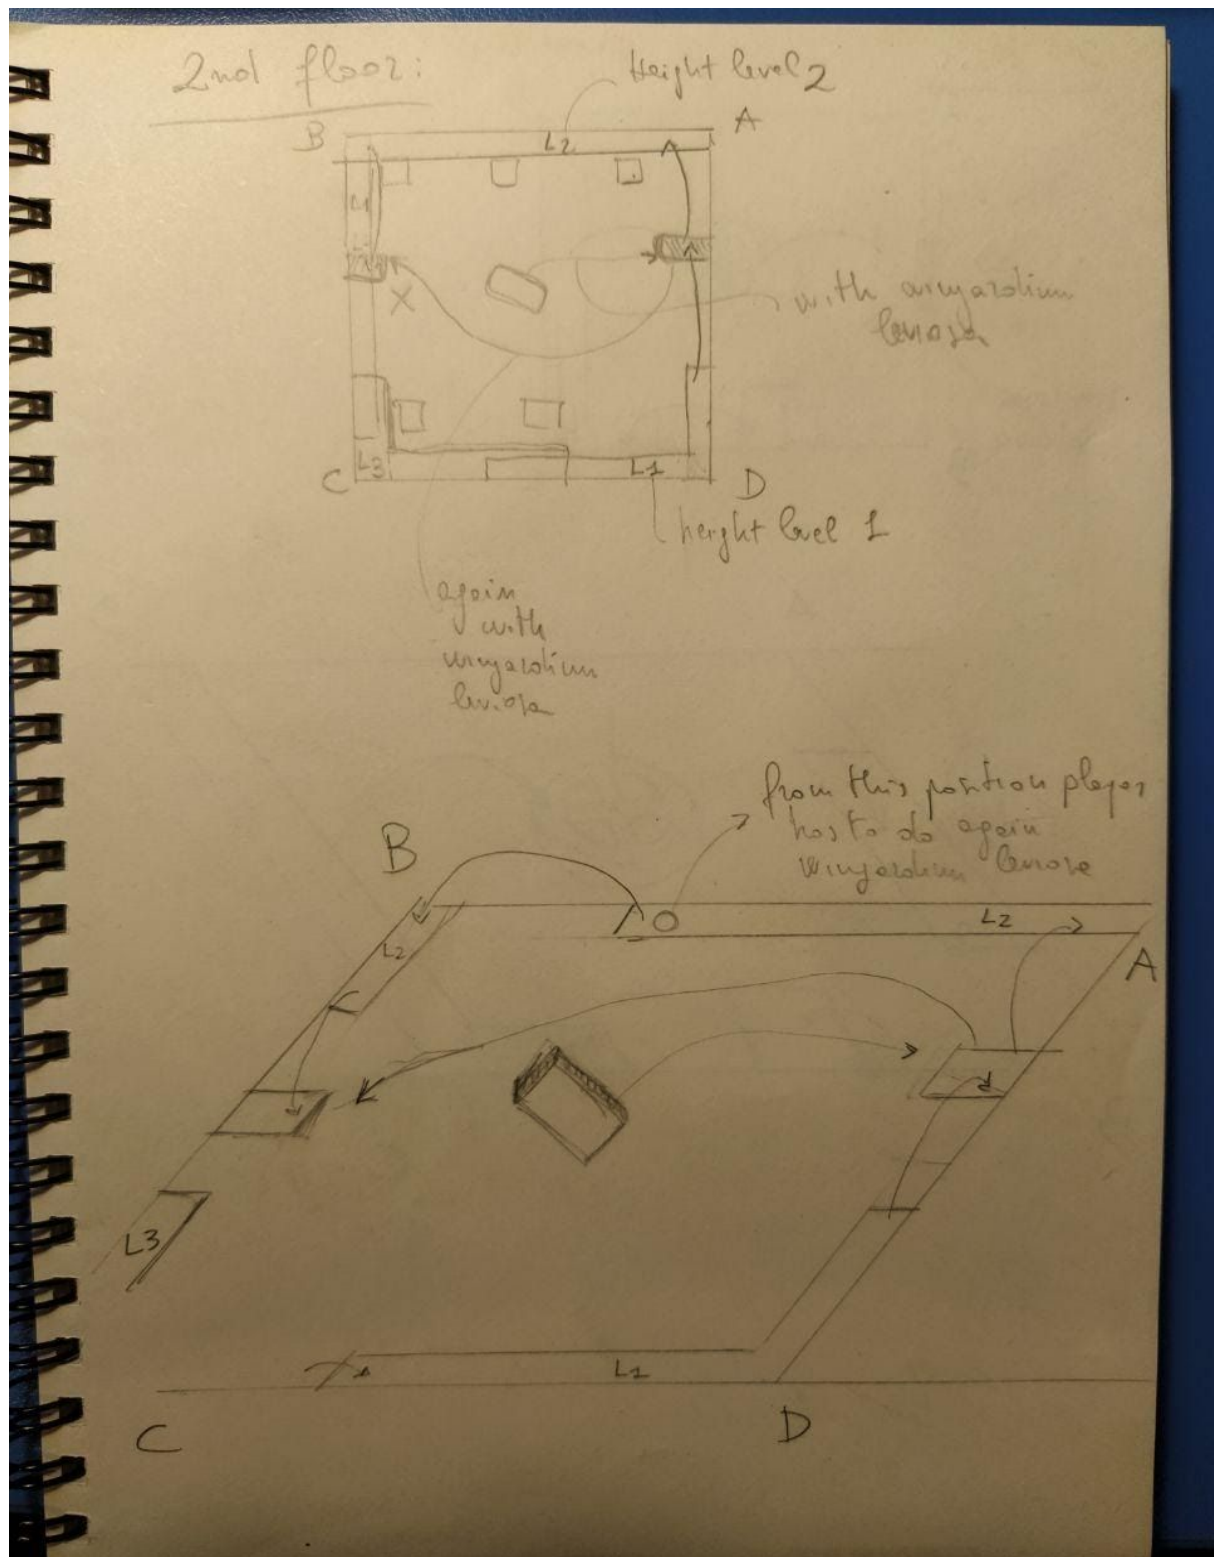 2nd floor:
Height level 2
B
A
L2
X
with wingardium
leviosa
L3
L1
C
D
height level 1
again
with
wingardium
leviosa
from this position player
has to do again
wingardium leviosa
B
L2
L2
A
L3
L1
C
D